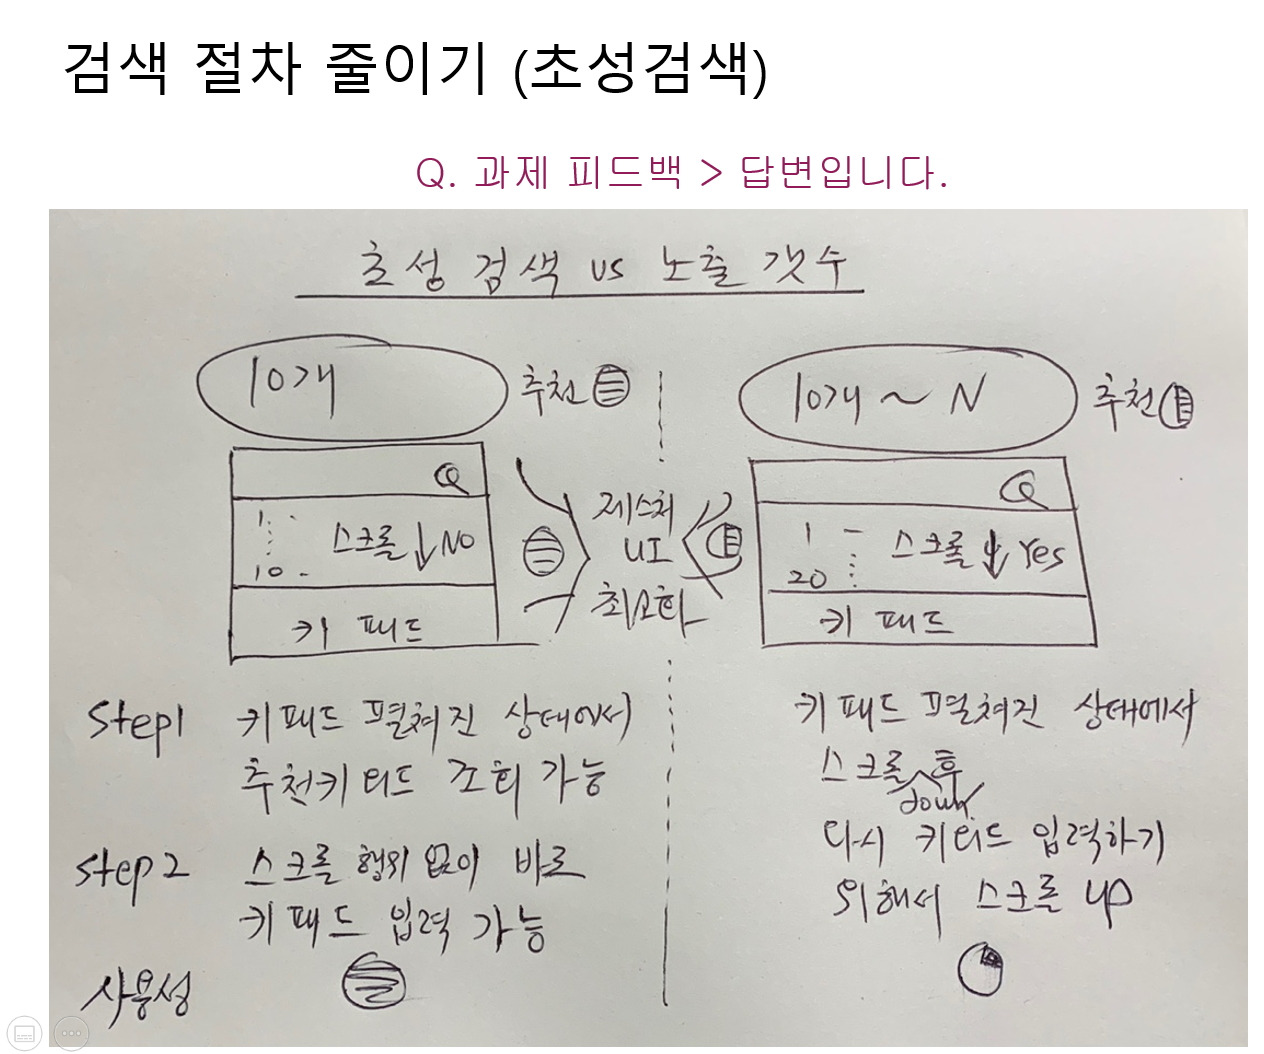 검색 절차 줄이기 (초성검색)
Q. 과제 피드백 > 답변입니다.
초성 검색 vs 노출 갯수
10개 추천
Q
1
10
스크롤 ↓ NO
키 패드
제스처
UI
최소화
10개 ~ N 추천
Q
1
20
스크롤 ↓ Yes
키 패드
Step1 키패드 펼쳐진 상태에서
추천키워드 조회 가능
Step2 스크롤 행위 없이 바로
키패드 입력 가능
키패드 펼쳐진 상태에서
스크롤 down 후
다시 키워드 입력하기
위해서 스크롤 up
사용성